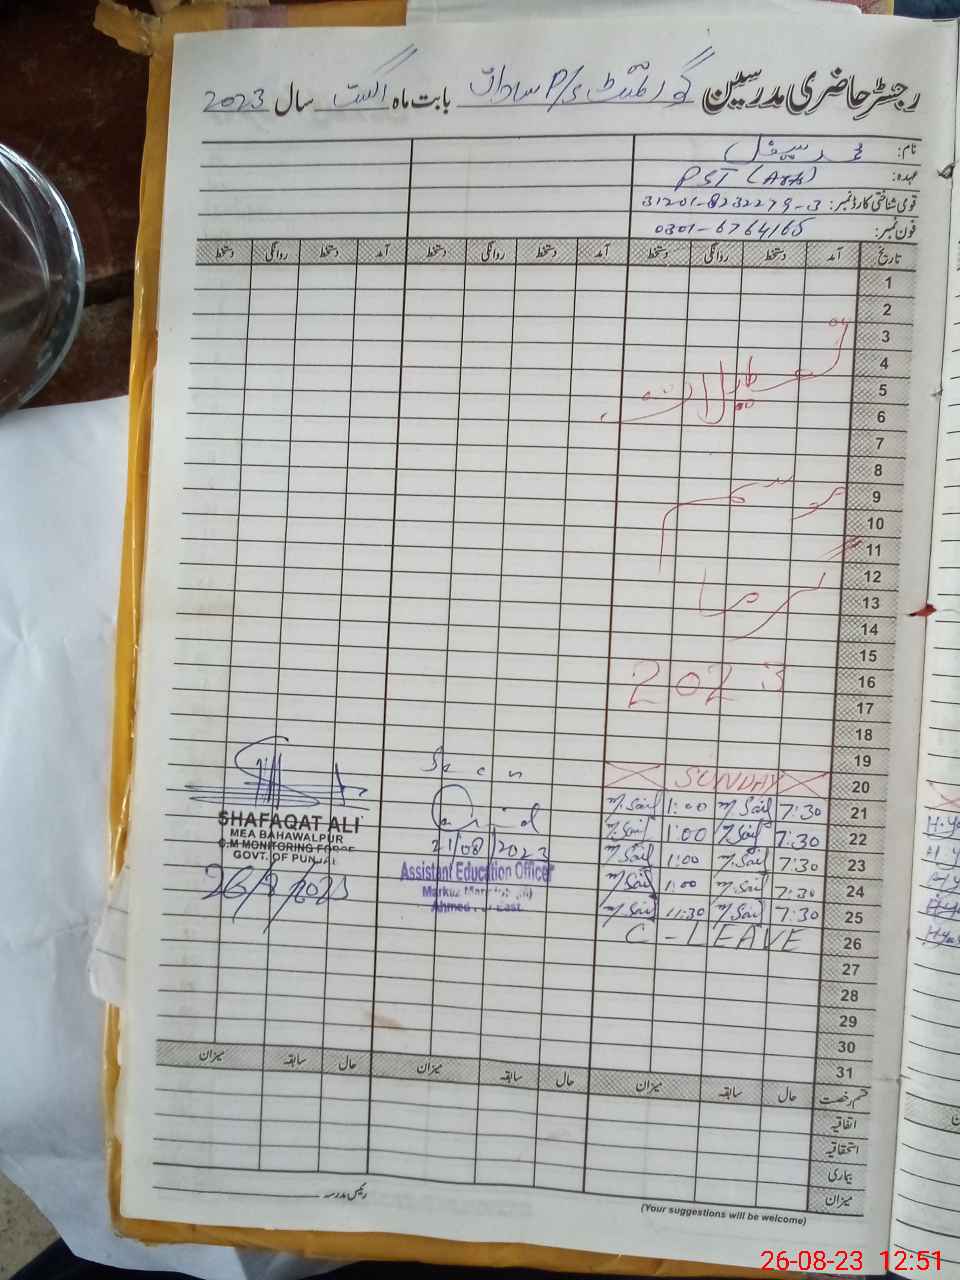 رجسٹر حاضری مدرسین گورنمنٹ P/S سادات بابت ماہ اگست سال 2023
نام:
عہدہ: PST (Arts)
قومی شناختی کارڈ نمبر: 31201-8232279-3
فون نمبر: 0301-6764165
تاریخ آمد دستخط روانگی دستخط آمد دستخط روانگی دستخط آمد دستخط روانگی دستخط
1
2
3
4
5 تعطیلات
6
7
8
9 موسم
10
11
12
13 گرما
14
15
16 2023
17
18
19 Seen
20 SUNDAY
21 7:30 M. Saif 1:00 M. Saif
22 7:30 M. Saif 1:00 M. Saif
23 7:30 M. Saif 1:00 M. Saif
24 7:30 M. Saif 1:00 M. Saif
25 7:30 M. Saif 11:30 M. Saif
26 C-LEAVE
27
28
29
30
31
21/08/2023
Assistant Education Officer
Markaz
Ahmed Pur East
SHAFAQAT ALI
MEA BAHAWALPUR
C.M MONITORING FORCE
GOVT. OF PUNJAB
26/8/2023
قسم رخصت حال سابقہ میزان حال سابقہ میزان حال سابقہ میزان
اتفاقیہ
استحقاقیہ
بیماری
میزان
رئیس مدرسہ
(Your suggestions will be welcome)
26-08-23 12:51